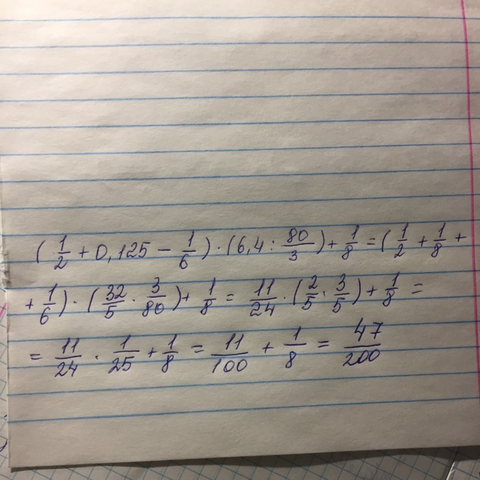 (1/2 + 0,125 − 1/6) · (6,4 : 80/3) + 1/8 = (1/2 + 1/8 +
+ 1/6) · (32/5 · 3/80) + 1/8 = 11/24 · (2/5 · 3/5) + 1/8 =
= 11/24 · 1/25 + 1/8 = 11/100 + 1/8 = 47/200